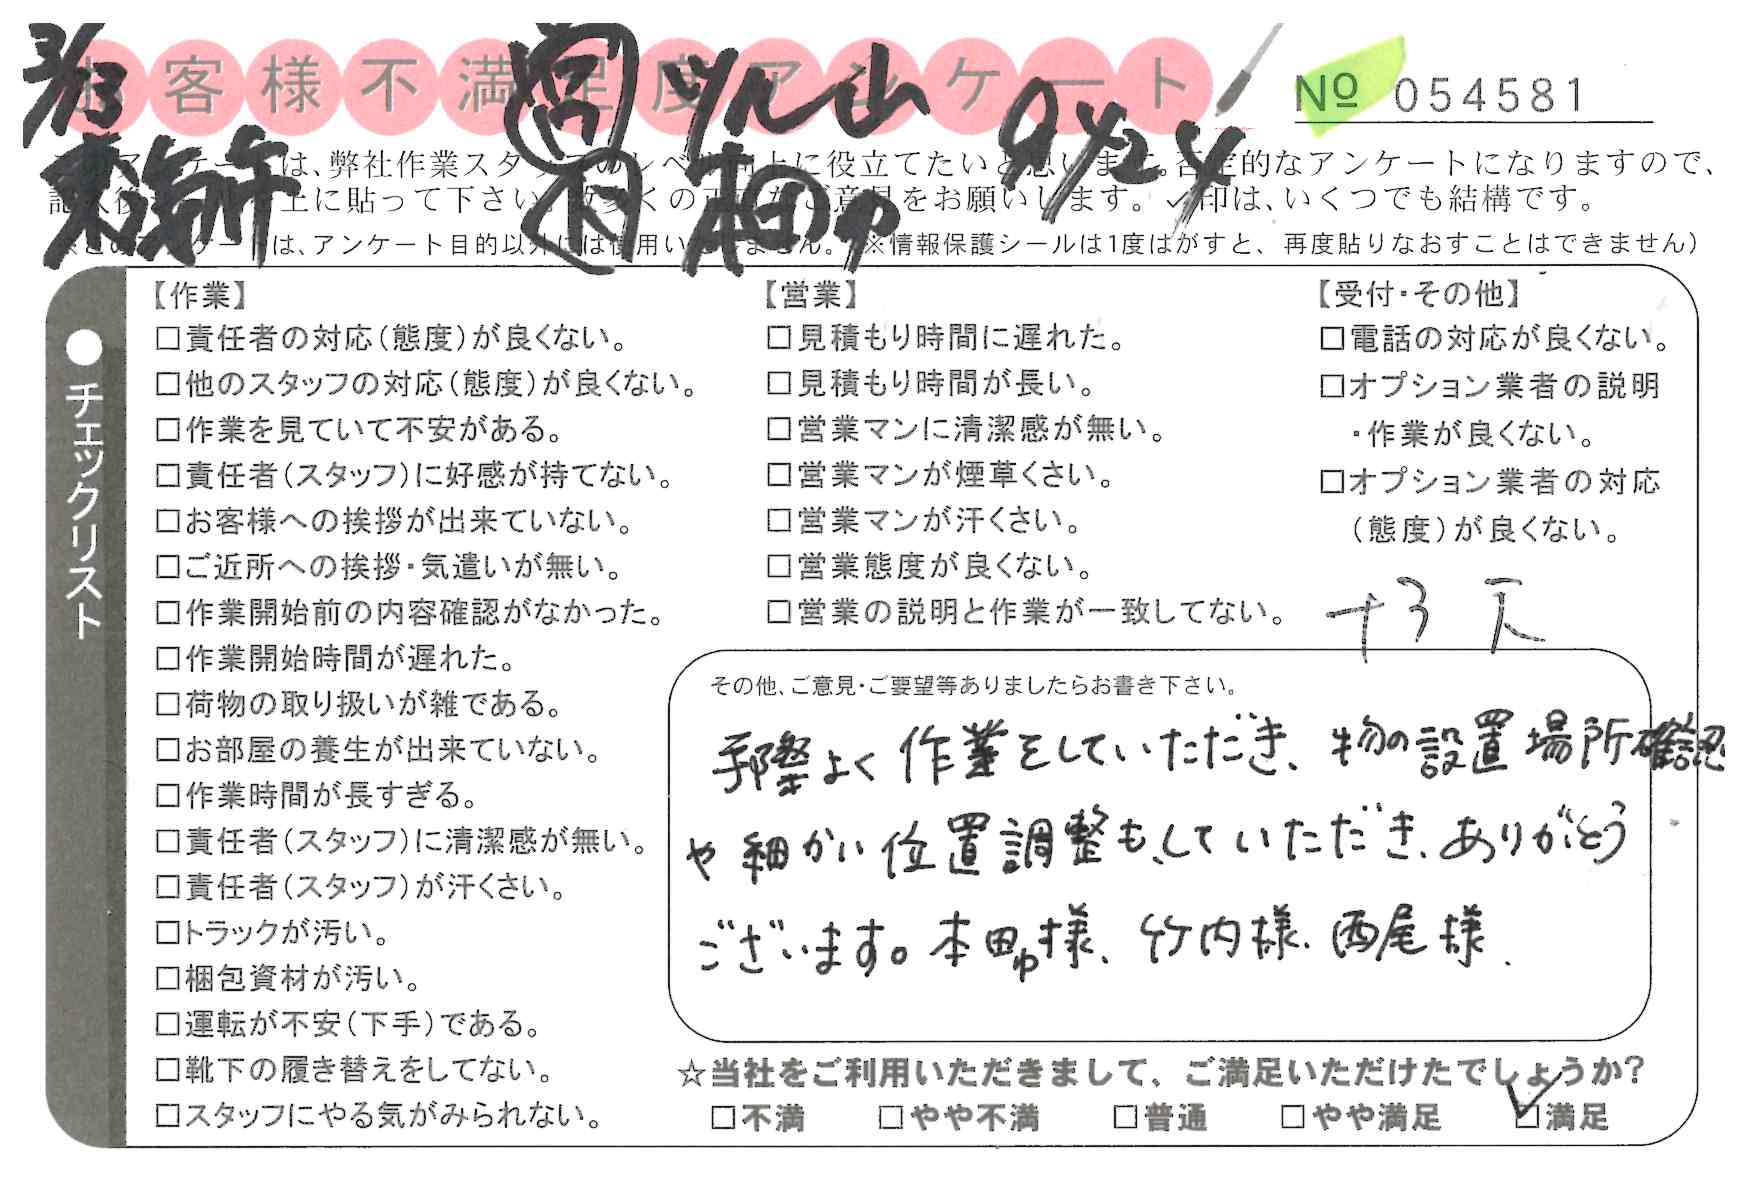 3/13
お客様不満足度アンケート
営 ツル山
9/24
№ 054581
本田
このアンケートは、弊社作業スタッフのレベル向上に役立てたいと思います。否定的なアンケートになりますので、
記入後、シール上に貼って下さい。数多くの正直なご意見をお願いします。✓印は、いくつでも結構です。
※このアンケートは、アンケート目的以外には使用いたしません。（※情報保護シールは1度はがすと、再度貼りなおすことはできません）
●チェックリスト
【作業】
□責任者の対応（態度）が良くない。
□他のスタッフの対応（態度）が良くない。
□作業を見ていて不安がある。
□責任者（スタッフ）に好感が持てない。
□お客様への挨拶が出来ていない。
□ご近所への挨拶・気遣いが無い。
□作業開始前の内容確認がなかった。
□作業開始時間が遅れた。
□荷物の取り扱いが雑である。
□お部屋の養生が出来ていない。
□作業時間が長すぎる。
□責任者（スタッフ）に清潔感が無い。
□責任者（スタッフ）が汗くさい。
□トラックが汚い。
□梱包資材が汚い。
□運転が不安（下手）である。
□靴下の履き替えをしてない。
□スタッフにやる気がみられない。
【営業】
□見積もり時間に遅れた。
□見積もり時間が長い。
□営業マンに清潔感が無い。
□営業マンが煙草くさい。
□営業マンが汗くさい。
□営業態度が良くない。
□営業の説明と作業が一致してない。
【受付・その他】
□電話の対応が良くない。
□オプション業者の説明
・作業が良くない。
□オプション業者の対応
（態度）が良くない。
その他、ご意見・ご要望等ありましたらお書き下さい。
手際よく作業をしていただき、物の設置場所確認
や細かい位置調整も、していただき、ありがとう
ございます。本田ゆ様、竹内様、西尾様.
☆当社をご利用いただきまして、ご満足いただけたでしょうか？
□不満 □やや不満 □普通 □やや満足 ☑満足